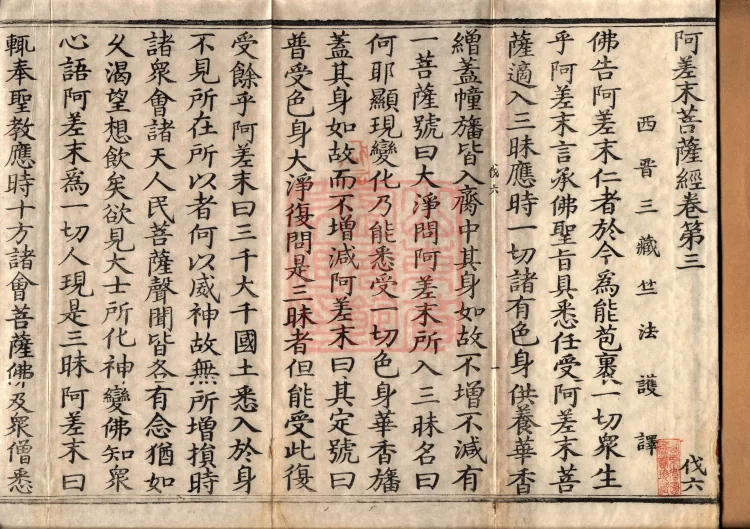 阿差末菩薩經卷第三
伐六
西晉三藏竺法護譯
佛告阿差末仁者於今爲能苞裹一切衆生
乎阿差末言承佛聖旨具悉任受阿差末菩
薩適入三昧應時一切諸有色身供養華香
伐六
繒蓋幢旛皆入齎中其身如故不增不減有
一菩薩號曰大淨問阿差末所入三昧名曰
何耶顯現變化乃能悉受一切色身華香旛
蓋其身如故而不增減阿差末曰其定號曰
普受色身大淨復問是三昧者但能受此復
受餘乎阿差末曰三千大千國土悉入於身
不見所在所以者何以威神故無所增損時
諸衆會諸天人民菩薩聲聞皆各有念猶如
久渴望想飲矣欲見大士所化神變佛知衆
心語阿差末爲一切人現是三昧阿差末曰
輒奉聖教應時十方諸會菩薩佛及衆僧悉